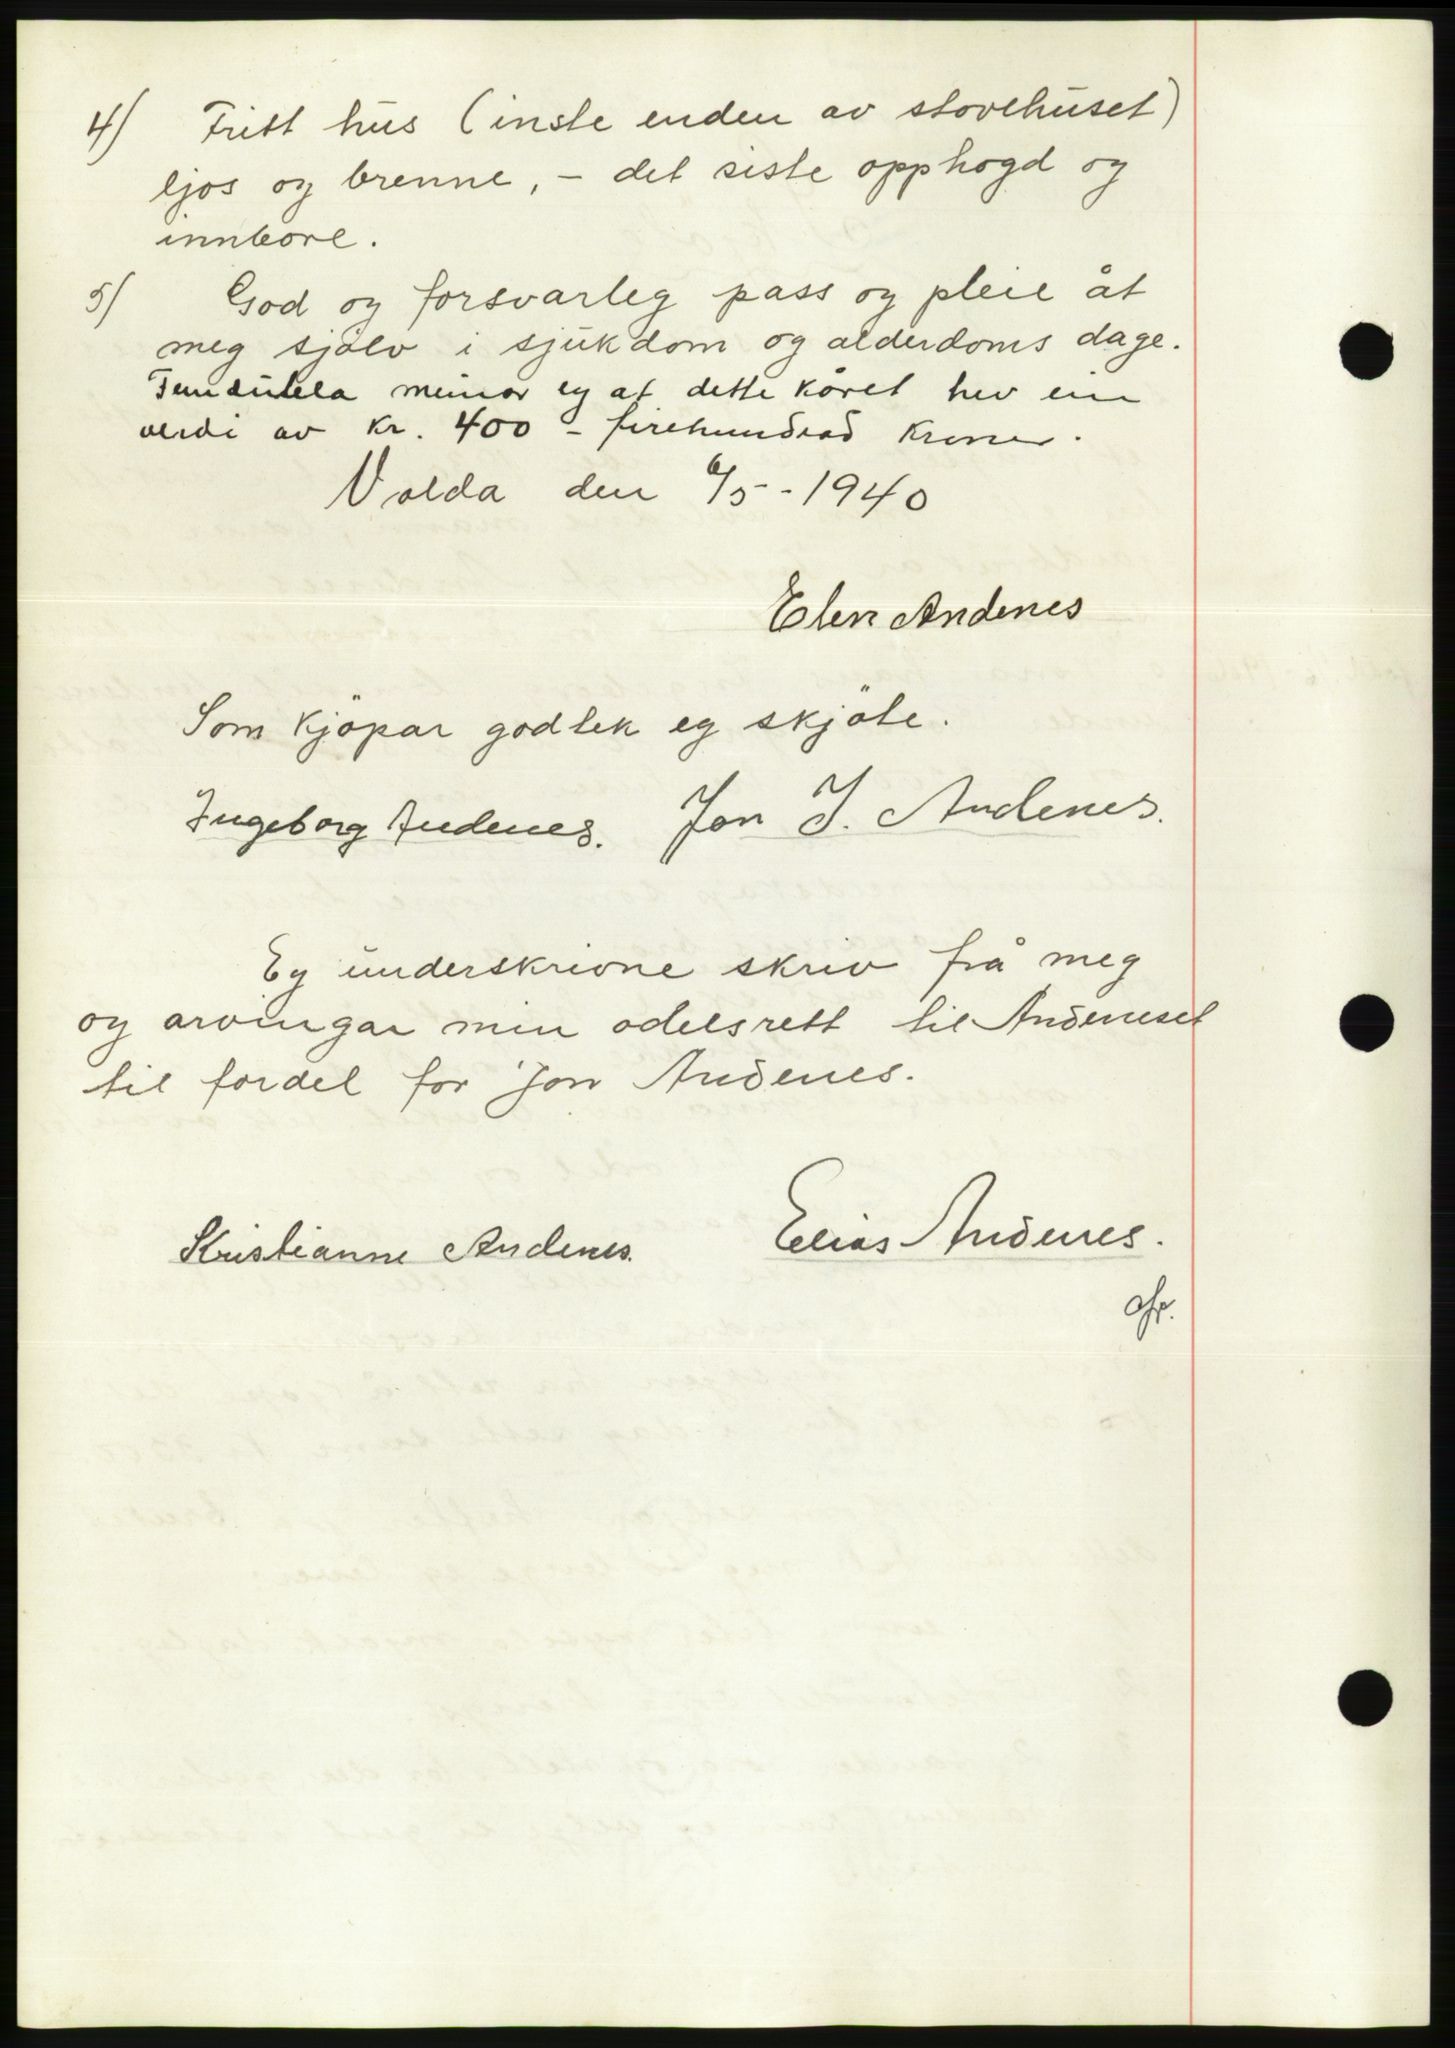 4) Fritt hus (inste enden av stovehuset)
ljos og brenne, - det siste opphogd og
innbore.
5) God og forsvarleg pass og pleie åt
meg sjølv i sjukdom og alderdoms dage.
meinar eg at dette kåret hev ein
verdi av kr. 400 - firehundrad kroner.
Volda den 6/5 - 1940
Elen Andenes
Som kjöpar godtek eg skjöte.
Ingeborg Andenes. Jon J. Andenes.
Eg underskrivne skriv frå meg
og arvingar min odelsrett til Andeneset
til fordel for Jon Andenes.
Kristianne Andenes. Elias Andenes.